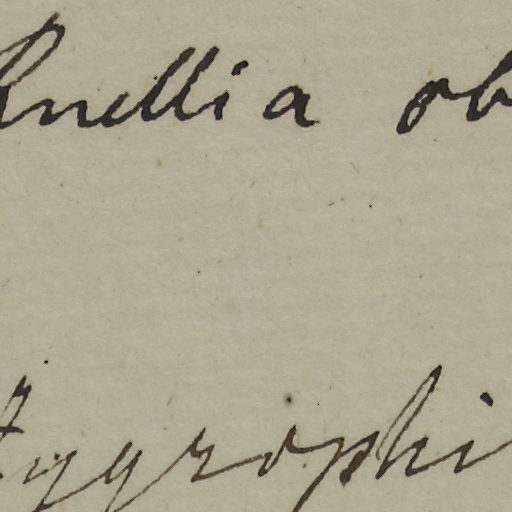 Ruellia ob
Hygrophi